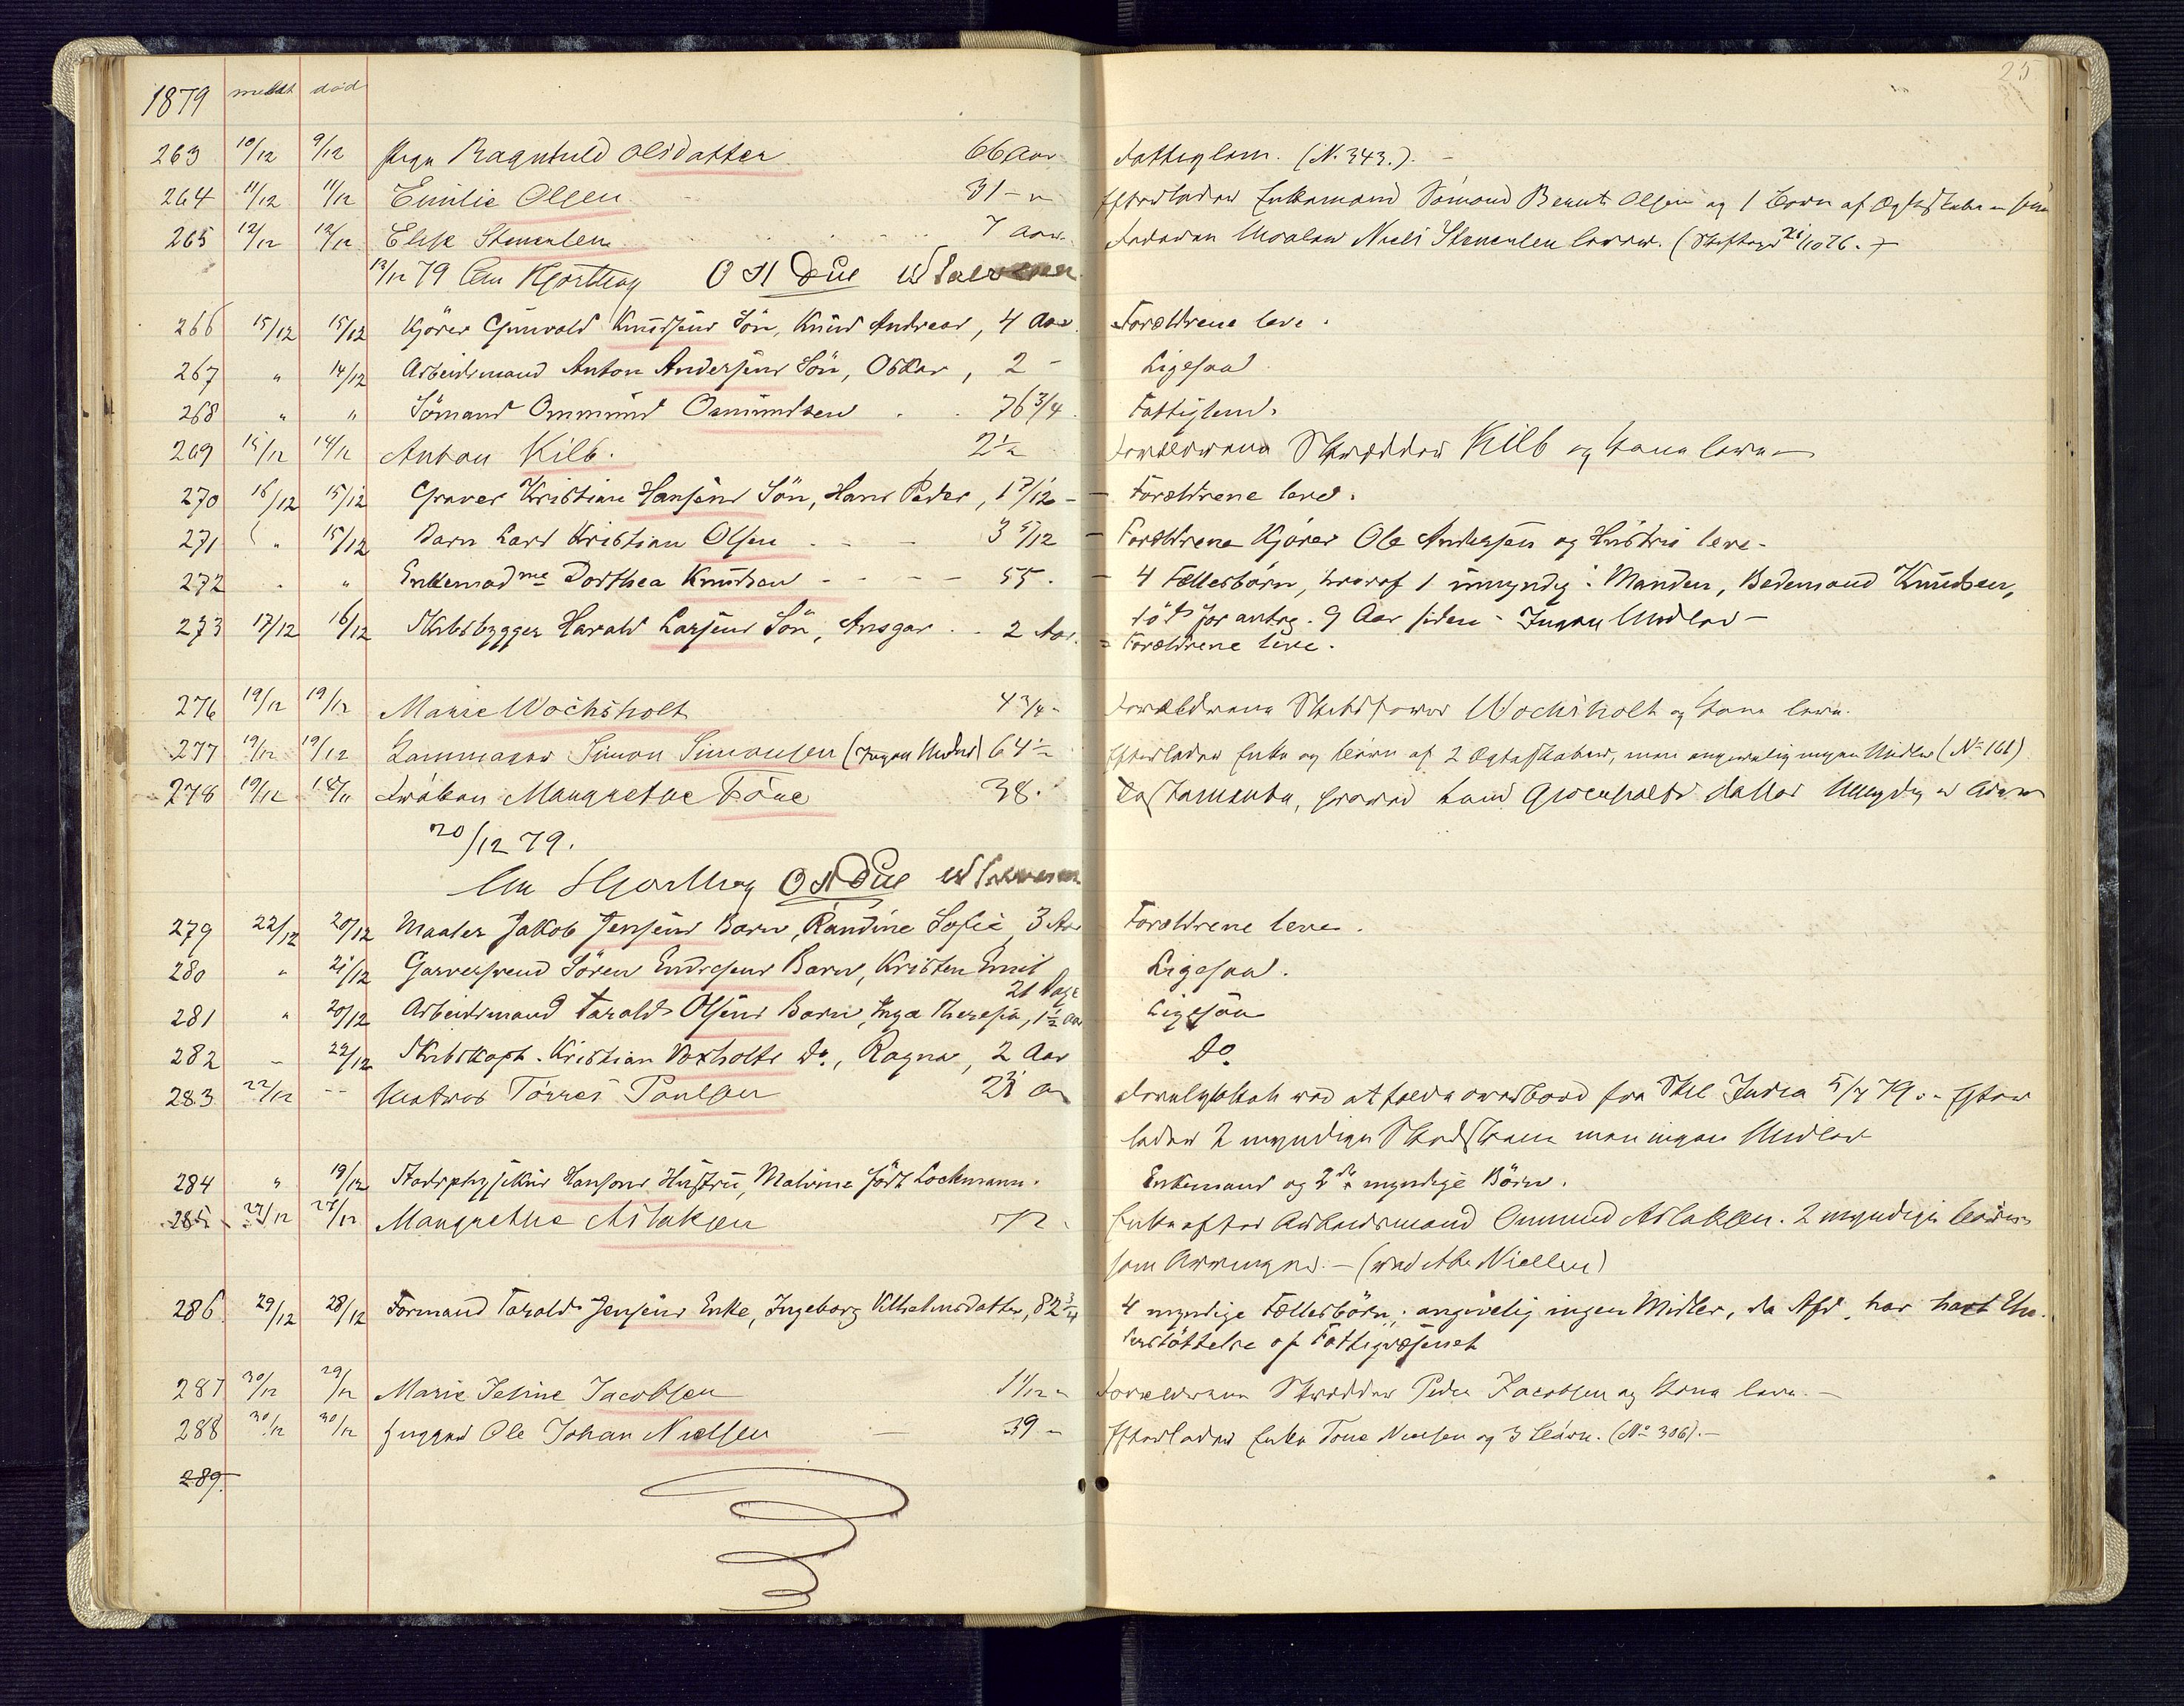 25
1879 meldt død
263 10/12 9/12 Pige Ragnhild Olsdatter 66 Aar Fattiglem. (N. 343.). -
264 11/12 11/12 Emilie Olsen 31 - Efterlader Enkemand Sømand Berent Olsen og 1 Barn af Ægteskabet
265 12/12 12/12 Elise Stenersen 7 Aar Faderen Maaler Niels Stenersen lever.
13/12 79 Chr Hjorthøy O N Due
266 15/12 15/12 Kjører Gunvald Knudsens Søn, Knud Andreas, 4 Aar Forældrene leve.
267 " 14/12 Arbeidsmand Anton Andersens Søn, Oskar, 2 - Ligesaa
268 " " Sømand Ommund Osmundsen 76 3/4 Fattiglem.
269 15/12 14/12 Anton Kilb. 2½ Forældrene Skrædder Kilb og Kone leve
270 16/12 15/12 Graver Kristian Hansens Søn, Hans Peder, 1 7/12 - Forældrene leve.
271 " 15/12 Barn Karl Kristian Olsen 3 5/12 - Forældrene Kjører Ole Andersen og Hustru leve.
272 " " Enkemadme Dorthea Knudsen - - - - 55. - 4 Fællesbørn, hvoraf 1 umyndig. Manden, Bedemand Knudsen,
død for antag. 9 Aar siden - Ingen Midler -
273 17/12 16/12 Skibsbygger Harald Larsens Søn, Ansgar . . 2 Aar. = Forældrene leve.
276 19/12 19/12 Marie Wochsholt 4 3/4 - Forældrene Skibsfører Wochsholt og Kone leve.
277 19/12 19/12 Simon Simonsen (Ingen Midler) 64½ Efterlader Enke og Børn af 2 Ægteskaber, men angivelig ingen Midler (No 161)
278 19/12 18/12 Frøken Margrethe Føne 38. Testamente,
20/12 79.
Chr Hjorthøy O N Due
279 22/12 20/12 Maaler Jakob Jensens Barn, Randine Sofie, 3 Aar Forældrene leve.
280 " 21/12 Garversvend Søren Endresens Barn, Kristen Emil 21 Dage Ligesaa.
281 " 20/12 Arbeidsmand Tarald Olsens Barn, Inga Theresia, 1½ Aar Ligesaa
282 " 22/12 Skibskapt. Kristian Voxholts Do., Ragna, 2 Aar Do
283 22/12 - - Matros Tørres Paulsen 23 Aar Forulykket ved at falde overbord fra Skib India 5/7 79. - Efter
lader 2 myndige Søskende men ingen Midler
284 " 19/12 Stadsphysikus Hansons Hustru, Malvine født Lochmann. Enkemand og 2 myndige Børn.
285 27/12 27/12 Margrethe Aslaksen 72 Enke efter Arbeidsmand Ommund Aslaksen. 2 myndige Børn
som Arvinger. - (ved Nielsen)
286 29/12 28/12 Formand Tarald Jensens Enke, Ingeborg Vilhelmsdatter, 82 3/4 4 myndige Fællesbørn; angivelig ingen Midler, da Afd. har havt Un-
derstøttelse af Fattigvæsenet
287 30/12 29/12 Marie Jesine Jacobsen 1 1/12 - Forældrene Skrædder Peder Jacobsen og Kone leve. -
288 30/12 30/12 Ole Johan Nielsen 39 - Efterlader Enke Tone Nielsen og 3 Børn. (No 306). -
289.